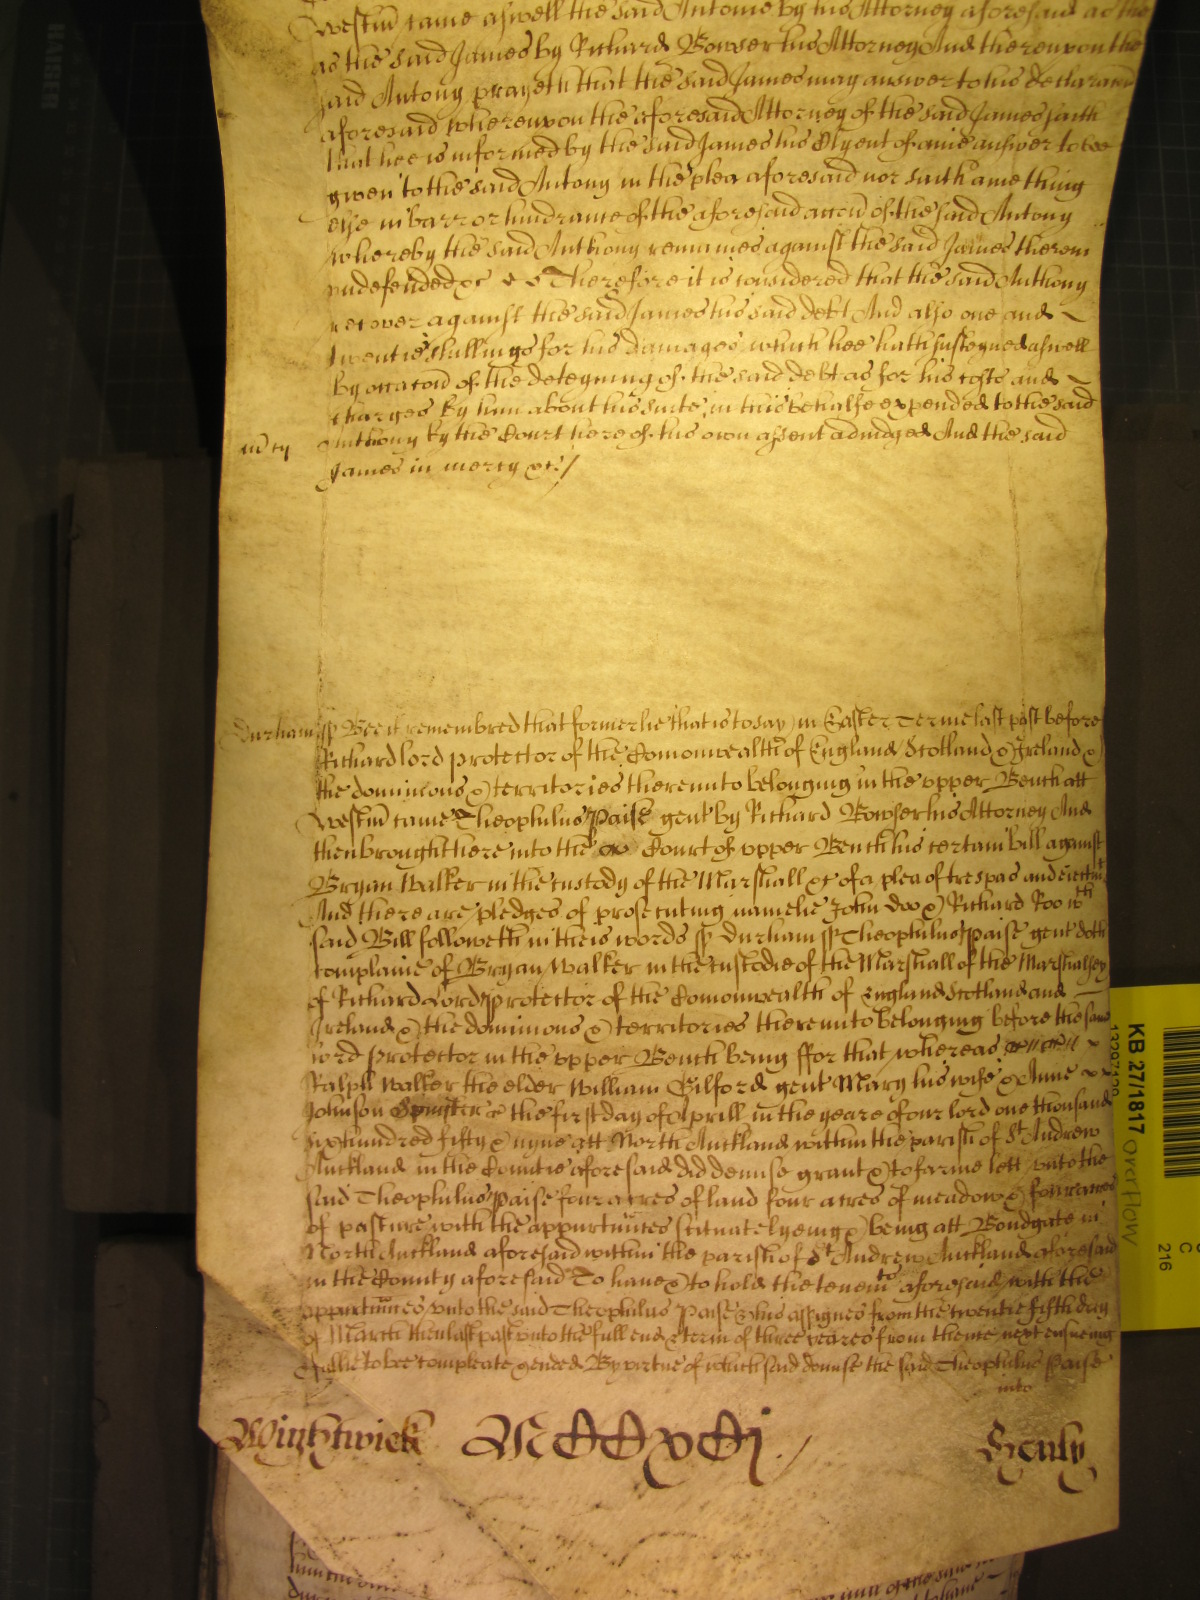 Westm came aswell the said Antonie by his Attorney aforesaid as the
as the said James by Richard Bowser his Attorney And thereupon the
said Antony prayeth that the said James may answer to his declaracon
aforesaid whereupon the aforesaid Attorney of the said James saith
that hee is informed by the said James his Clyent of anie answer to bee
given to the said Antony in the plea aforesaid nor saith anie thing
else in barr or hindrance of the aforesaid accon of the said Antony
whereby the said Anthony remaines against the said James therein
undefended &c Therefore it is considered that the said Anthony
recover against the said James his said debt And also one and
twentie shillings for his damages which hee hath susteyned aswell
by occacon of the deteyning of the said debt as for his costs and
charges by him about his suite in this behalfe expended to the said
Anthony by the Court here of his own assent adiudged And the said
James in mercy &c /
Durham ss Bee it remembred that formerlie that is to say in Easter Terme last past before
Richard lord protector of the Comonwealth of England Scotland & Ireland &
the dominions & territories thereunto belonging in the upper Bench att
Westm came Theophilus Paise gent by Richard Bowser his Attorney And
then brought here into the Court of upper Bench his certain bill against
Bryan Walker in the custody of the Marshall &c of a plea of trespas and eiectmt
And there are pledges of prosecuting namelie John doo & Richard Roo wch
said Bill followeth in theis words ss Durham ss Theophilus Paise gent doth
complaine of Bryan Walker in the custodie of the Marshall of the Marshalsey
of Richard Lord protector of the Comonwealth of England Scotland and
Ireland & the dominions & territories thereunto belonging before the said
lord protector in the upper Bench being ffor that whereas
Ralph Walker the elder William Gilford gent Mary his wife & Anne
Johnson Spinster the first day of Aprill in the yeare of our lord one thousand
six hundred fifty & nyne att North Auckland within the parish of St Andrew
Auckland in the Countie aforesaid did demise grant & to farme lett unto the
said Theophilus Paise four acres of land four acres of meadow & four acres
of pasture with the appurtunces scituate lyeing & being att Bondgate in
North Auckland aforesaid within the parish of St Andrew Auckland aforesaid
in the County aforesaid To have & to hold the tenemts aforesaid with the
appurtunces unto the said Theophilus Paise & his assignes from the twentie fifth day
of March then last past unto the full end & term of three yeares from thence next ensueing
fullie to bee compleate & ended By virtue of which said demise the said Theophilus Paise
into
Wightwick
KB 27/1817 overflow
13297120
C
216